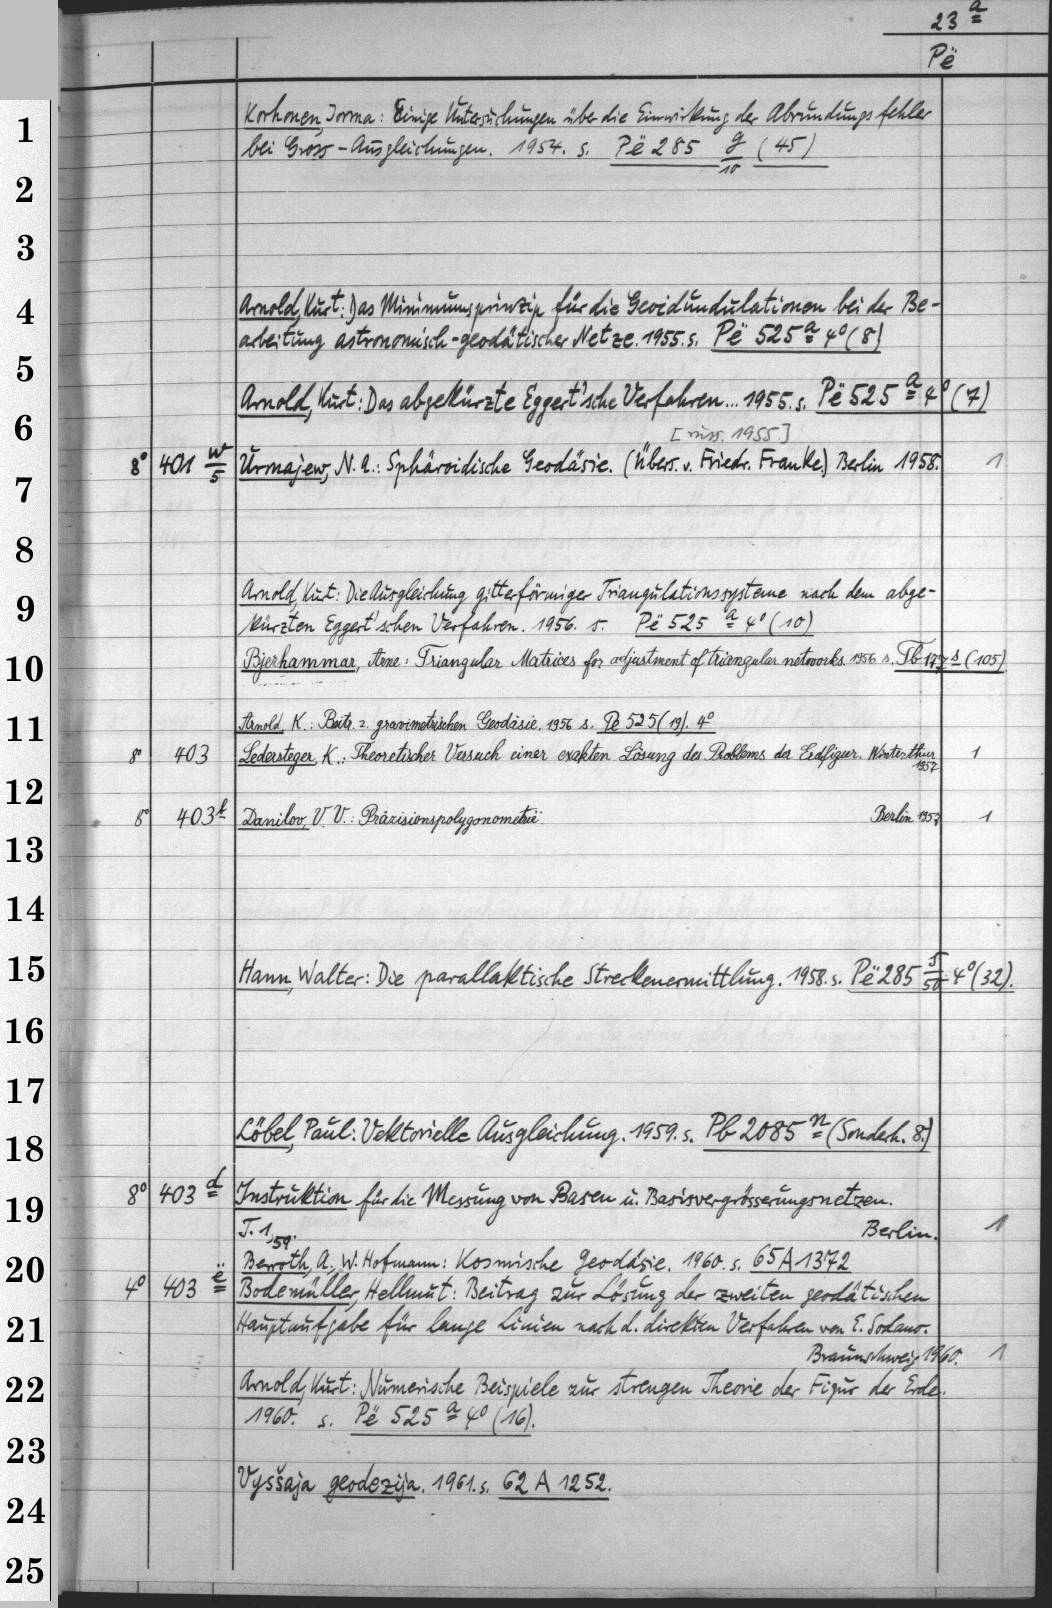 23 a
Pë
1
Korhonen, Jorma: Einige Untersuchungen über die Einwirkung der Abrundungsfehler
bei Gross-Ausgleichungen. 1954. s. Pë 285 g/10 (45)
2
3
4
Arnold, Kurt: Das Minimumsprinzip für die Geoidundulationen bei der Be-
arbeitung astronomisch-geodätischer Netze. 1955. s. Pë 525 a 4° (8)
5
Arnold, Kurt: Das abgekürzte Eggert'sche Verfahren... 1955. s. Pë 525 a 4° (7)
6
[russ. 1955.]
8° 401 w/5 Urmajew, N. A.: Sphäroidische Geodäsie. (Übers. v. Friedr. Franke.) Berlin 1958. 1
7
8
9
Arnold, Kurt: Die Ausgleichung gitterförmiger Triangulationssysteme nach dem abge-
kürzten Eggert'schen Verfahren. 1956. s. Pë 525 a 4° (10)
10
Bjerhammar, Arne: Triangular Matrices for adjustment of triangular networks. 1956 s. Tb 177 s (105)
11
Arnold, K.: Beitr. z. gravimetrischen Geodäsie. 1956 s. Pë 525 (19). 4°
8° 403 Ledersteger, K.: Theoretischer Versuch einer exakten Lösung des Problems der Erdfigur. Winterthur 1957 1
12
8° 403 b Danilov, V. V.: Präzisionspolygonometrie Berlin 1957 1
13
14
15
Hann, Walter: Die parallaktische Streckenermittlung. 1958. s. Pë 285 5/50 4° (32).
16
17
18
Löbel, Paul: Vektorielle Ausgleichung. 1959. s. Pb 2085 n (Sonderh. 8.)
8° 403 d Instruktion für die Messung von Basen u. Basisvergrösserungsnetzen.
19
T. 1, 59. Berlin. 1
20
Berroth, A., W. Hofmann: Kosmische Geodäsie. 1960. s. 65 A 1372
4° 403 e Bodemüller, Hellmut: Beitrag zur Lösung der zweiten geodätischen
21
Hauptaufgabe für lange Linien nach d. direkten Verfahren von E. Sodano.
Braunschweig 1960. 1
22
Arnold, Kurt: Numerische Beispiele zur strengen Theorie der Figur der Erde.
1960. s. Pë 525 a 4° (16).
23
24
Vysšaja geodezija. 1961. s. 62 A 1252.
25